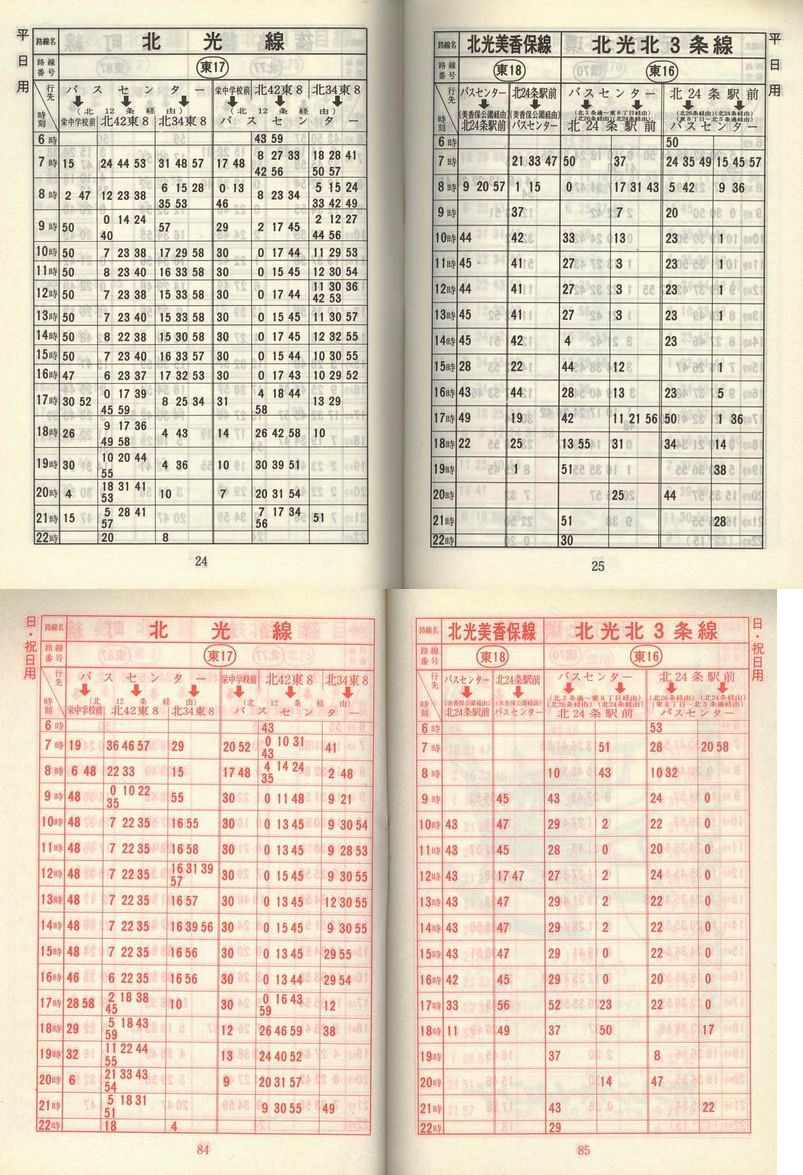 平日用
路線名 北光線
路線番号 東17
行先 バスセンター 栄中学校前 北42東8 北34東8
(北12条経由) (北12条経由)
時刻 栄中学校前 北42東8 北34東8 バスセンター
6時 43 59
7時 15 24 44 53 31 48 57 17 48 8 27 33 42 56 18 28 41 50 57
8時 2 47 12 23 38 6 15 28 35 53 0 13 46 8 23 34 5 15 24 33 42 49
9時 50 0 14 24 40 57 29 2 17 45 2 12 27 44 56
10時 50 7 23 38 17 29 58 30 0 17 44 11 29 53
11時 50 8 23 40 16 33 58 30 0 15 45 12 30 54
12時 50 7 23 38 15 33 58 30 0 17 44 11 30 36 42 53
13時 50 7 23 40 15 33 58 30 0 15 45 11 30 57
14時 50 8 22 38 15 30 58 30 0 17 45 12 32 55
15時 50 7 23 40 16 33 57 30 0 15 44 10 30 55
16時 47 6 23 37 17 32 53 30 0 17 43 10 29 52
17時 30 52 0 17 39 45 59 8 25 34 31 4 18 44 58 13 29
18時 26 9 17 36 49 58 4 43 14 26 42 58 10
19時 30 10 20 44 55 4 36 10 30 39 51
20時 4 18 31 41 53 10 7 20 31 54
21時 15 5 28 41 57 7 17 34 56 51
22時 20 8
24
平日用
路線名 北光美香保線 北光北3条線
路線番号 東18 東16
行先 バスセンター 北24条駅前 バスセンター 北24条駅前
(美香保公園経由) (美香保公園経由) (北3条通〜東8丁目経由) (北26条経由) (北24条経由) (北26条経由) (北24条経由) (東8丁目〜北3条経由)
時刻 北24条駅前 バスセンター 北24条駅前 バスセンター
6時 50
7時 21 33 47 50 37 24 35 49 15 45 57
8時 9 20 57 1 15 0 17 31 43 5 42 9 36
9時 37 7 20
10時 44 42 33 13 23 1
11時 45 41 27 3 23 1
12時 44 41 27 3 23 1
13時 45 41 27 3 23 1
14時 45 42 4 23
15時 28 22 44 12 1
16時 43 44 28 13 23 5
17時 49 19 42 11 21 56 50 1 36
18時 22 25 13 55 31 34 14
19時 1 51 38
20時 25 44
21時 51 28
22時 30
25
日・祝日用
路線名 北光線
路線番号 東17
行先 バスセンター 栄中学校前 北42東8 北34東8
(北12条経由) (北12条経由)
時刻 栄中学校前 北42東8 北34東8 バスセンター
6時 43
7時 19 36 46 57 29 20 52 0 10 31 43 41
8時 6 48 22 33 15 17 48 4 14 24 35 2 48
9時 48 0 10 22 35 55 30 0 11 48 9 21
10時 48 7 22 35 16 55 30 0 13 45 9 30 54
11時 48 7 22 35 16 58 30 0 13 45 9 28 53
12時 48 7 22 35 16 31 39 57 30 0 15 45 9 30 55
13時 48 7 22 35 16 57 30 0 13 45 12 30 55
14時 48 7 22 35 16 39 56 30 0 15 45 9 30 55
15時 48 7 22 35 16 56 30 0 13 45 29 55
16時 46 6 22 35 16 56 30 0 13 44 29 54
17時 28 58 2 18 38 45 10 30 0 16 43 59 12
18時 29 5 18 43 59 12 26 46 59 38
19時 32 11 22 44 55 13 24 40 52
20時 6 21 33 43 54 9 20 31 57
21時 5 18 31 51 9 30 55 49
22時 18 4
84
日・祝日用
路線名 北光美香保線 北光北3条線
路線番号 東18 東16
行先 バスセンター 北24条駅前 バスセンター 北24条駅前
(美香保公園経由) (美香保公園経由) (北3条通〜東8丁目経由) (北26条経由) (北24条経由) (北26条経由) (北24条経由) (東8丁目〜北3条経由)
時刻 北24条駅前 バスセンター 北24条駅前 バスセンター
6時 53
7時 51 28 20 58
8時 10 43 10 32
9時 45 43 6 24 0
10時 43 47 29 2 22 0
11時 43 45 28 0 20 0
12時 43 17 47 27 2 24 0
13時 43 47 29 2 22 0
14時 43 47 29 2 22 0
15時 43 47 29 0 22 0
16時 42 45 29 0 20 0
17時 33 56 52 23 22 0
18時 11 49 37 50 17
19時 37 8
20時 14 47
21時 43 22
22時 29
85